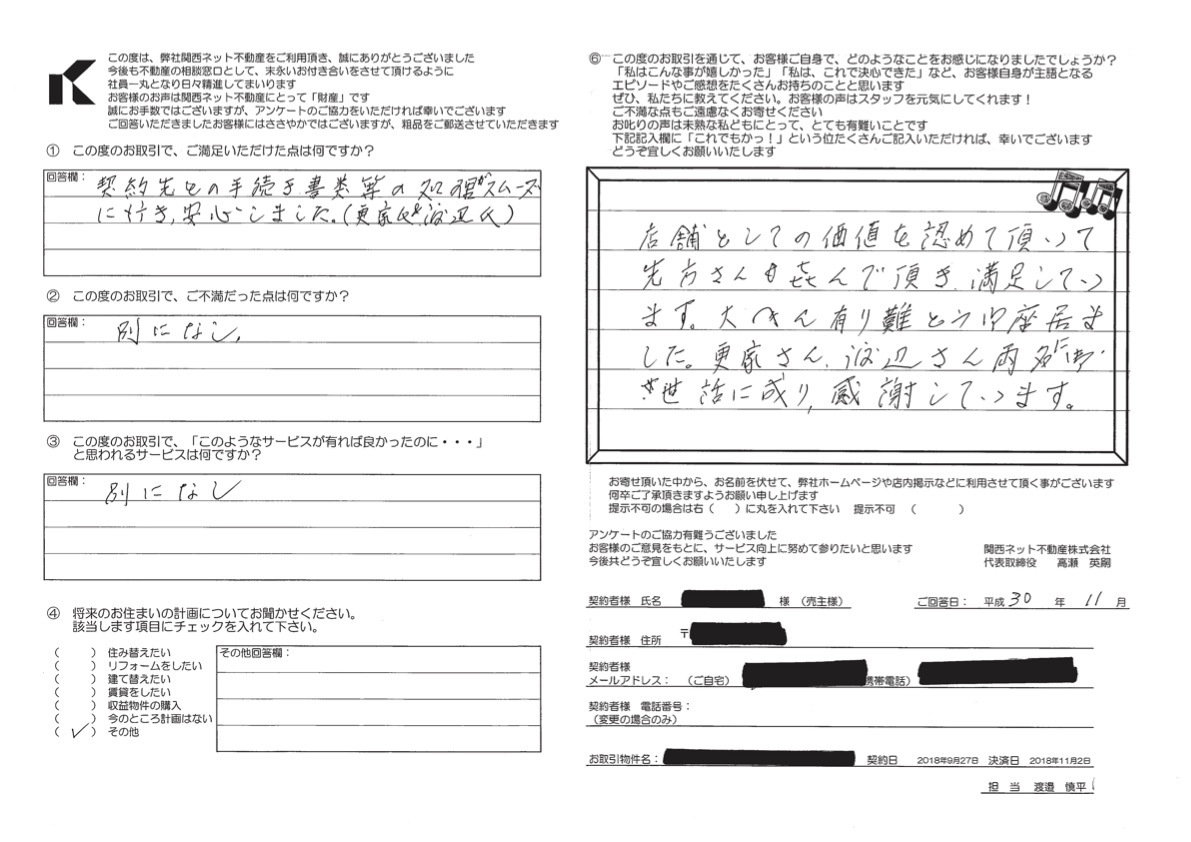 この度は、弊社関西ネット不動産をご利用頂き、誠にありがとうございました
今後も不動産の相談窓口として、末永いお付き合いをさせて頂けるように
社員一丸となり日々精進してまいります
お客様のお声は関西ネット不動産にとって「財産」です
誠にお手数ではございますが、アンケートのご協力をいただければ幸いでございます
ご回答いただきましたお客様にはささやかではございますが、粗品をご郵送させていただきます
① この度のお取引で、ご満足いただけた点は何ですか？
回答欄：
契約先との手続き書類等の処理がスムーズ
に行き,安心しました。(更家氏&渡辺氏)
② この度のお取引で、ご不満だった点は何ですか？
回答欄：
別になし,
③ この度のお取引で、「このようなサービスが有れば良かったのに・・・」
と思われるサービスは何ですか？
回答欄：
別になし
④ 将来のお住まいの計画についてお聞かせください。
該当します項目にチェックを入れて下さい。
( ) 住み替えたい
( ) リフォームをしたい
( ) 建て替えたい
( ) 賃貸をしたい
( ) 収益物件の購入
( ) 今のところ計画はない
(✓) その他
その他回答欄：
⑥ この度のお取引を通じて、お客様ご自身で、どのようなことをお感じになりましたでしょうか？
「私はこんな事が嬉しかった」「私は、これで決心できた」など、お客様自身が主語となる
エピソードやご感想をたくさんお持ちのことと思います
ぜひ、私たちに教えてください。お客様の声はスタッフを元気にしてくれます！
ご不満な点もご遠慮なくお寄せください
お叱りの声は未熟な私どもにとって、とても有難いことです
下記記入欄に「これでもかっ！」という位たくさんご記入いただければ、幸いでございます
どうぞ宜しくお願いいたします
店舗としての価値を認めて頂いて
先方さんも喜んで頂き,満足してい
ます。大へん有り難とう御座居ま
した。更家さん,渡辺さん両名に御
世話に成り,感謝しています。
お寄せ頂いた中から、お名前を伏せて、弊社ホームページや店内掲示などに利用させて頂く事がございます
何卒ご了承頂きますようお願い申し上げます
提示不可の場合は右（ ）に丸を入れて下さい 提示不可 （ ）
アンケートのご協力有難うございました
お客様のご意見をもとに、サービス向上に努めて参りたいと思います
今後共どうぞ宜しくお願いいたします
関西ネット不動産株式会社
代表取締役 高瀬 英嗣
契約者様 氏名 様（売主様） ご回答日： 平成 30 年 11 月
契約者様 住所 〒
契約者様
メールアドレス： （ご自宅） 携帯電話）
契約者様 電話番号：
（変更の場合のみ）
お取引物件名： 契約日 2018年9月27日 決済日 2018年11月2日
担 当 渡邉 慎平